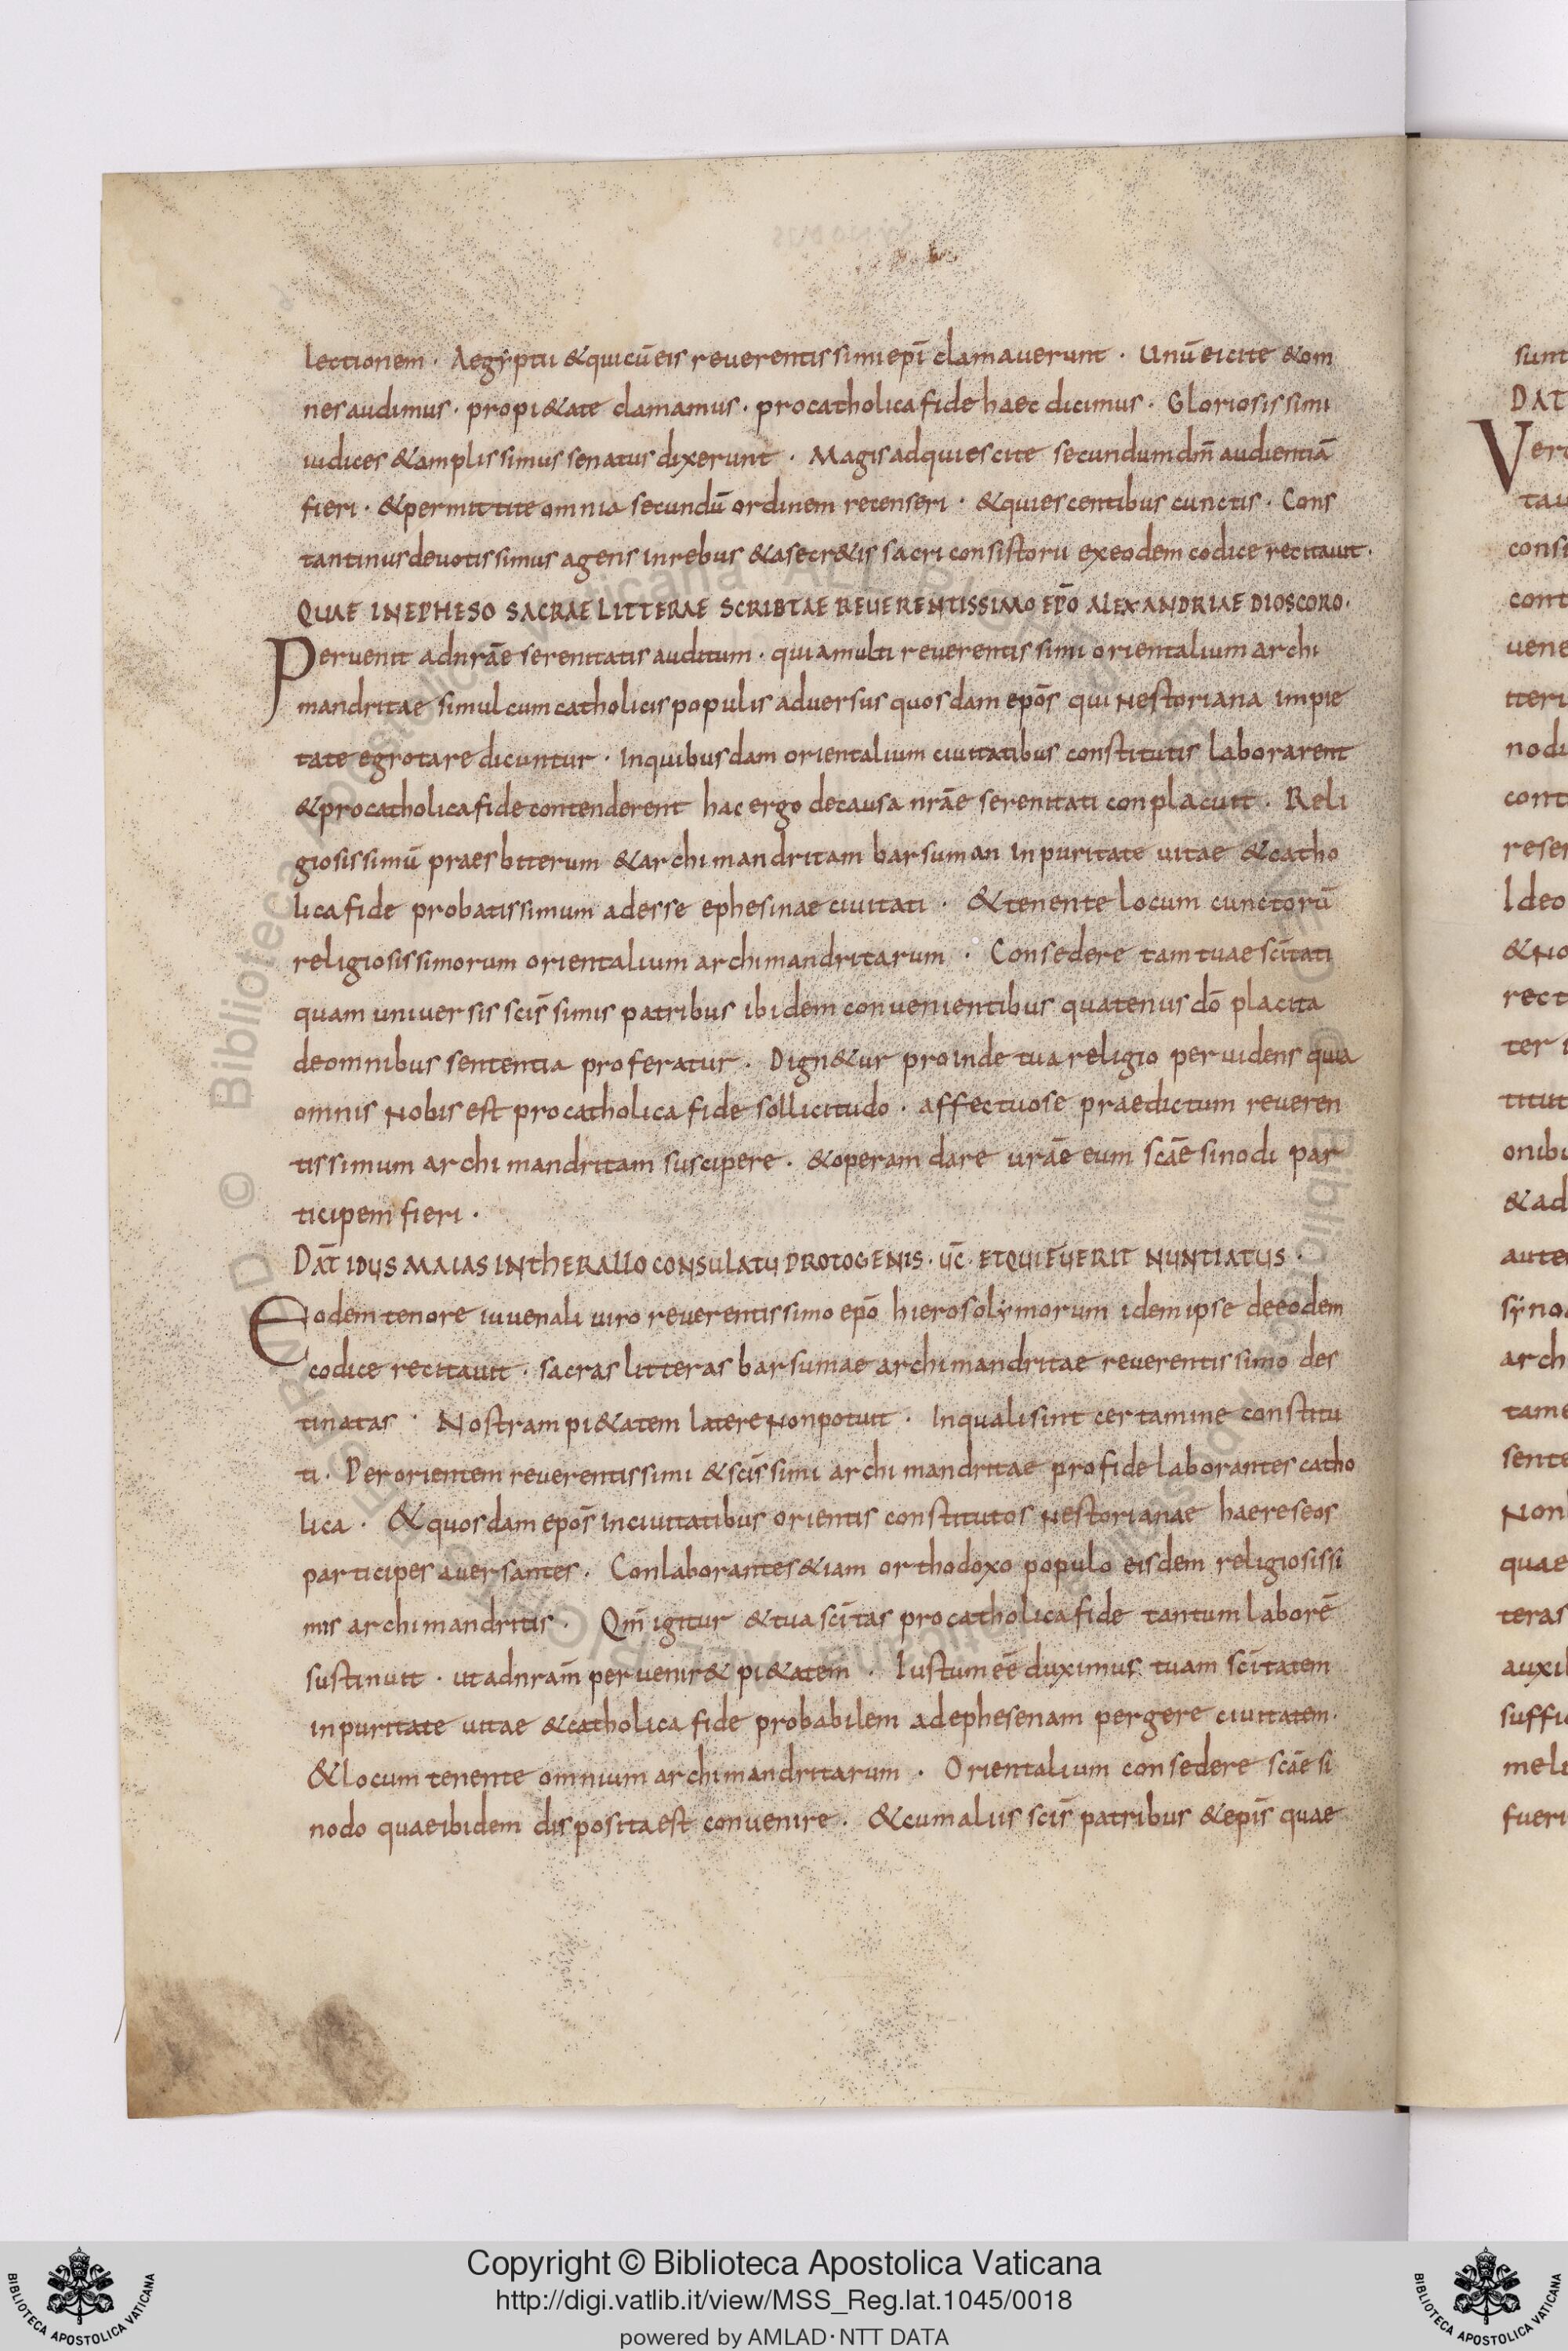 lectionem · Aegyptii & qui cū eis reuerentissimi epī clamauerunt · Unū eicite & om
nes audimus · pro pi&ate clamamus · pro catholica fide haec dicimus · Gloriosissimi
iudices & amplissimus senatus dixerunt · Magis adquiescite secundum dm̄ audientiā
fieri · & permittite omnia secundū ordinem recenseri · & quiescentibus cunctis · Cons
tantinus deuotissimus agens in rebus & a secr&is sacri consistorii ex eodem codice recitauit ·
QUAE IN EPHESO SACRAE LITTERAE SCRIBTAE REUERENTISSIMO EPŌ ALEXANDRIAE DIOSCORO ·
Peruenit ad nrāe serenitatis auditum · quia multi reuerentissimi orientalium archi
mandritae simul cum catholicis populis aduersus quosdam epōs qui Nestoriana impie
tate egrotare dicuntur · In quibusdam orientalium ciuitatibus constitutis laborarent
& pro catholica fide contenderent hac ergo de causa nrāe serenitati conplacuit · Reli
giosissimū praesbiterum & archimandritam barsuman In puritate uitae & catho
lica fide probatissimum adesse ephesinae ciuitati · & tenente locum cunctorū
religiosissimorum orientalium archimandritarum · Consedere tam tuae scītati
quam uniuersis scīssimis patribus ibidem conuenientibus quatenus dō placita
de omnibus sententia proferatur · Dign&ur proinde tua religio peruidens quia
omnis Nobis est pro catholica fide sollicitudo · affectuose praedictum reueren
tissimum archimandritam suscipere · & operam dare urāe eum scāe sinodi par
ticipem fieri ·
DAT̄ IDUS MAIAS IN THERALLO CONSULATU PROTOGENIS · UC̄ · ET QUI FUERIT NUNTIATUS ·
Eodem tenore iuuenali uiro reuerentissimo epō hierosolymorum idem ipse de eodem
codice recitauit · sacras litteras barsumae archimandritae reuerentissimo des
tinatas · Nostram pi&atem latere Non potuit · In quali sint certamine constitu
ti · Per orientem reuerentissimi & scīssimi archimandritae pro fide laborantes catho
lica · & quosdam epōs in ciuitatibus orientis constitutos Nestorianae haereseos
participes auersantes · Conlaborantes &iam orthodoxo populo eisdem religiosissi
mis archimandritis · Qm̄ igitur & tua scītas pro catholica fide tantum laborē
sustinuit · ut ad nram̄ peruenir& pi&atem · Iustum eē duximus tuam scītatem
in puritate uitae & catholica fide probabilem ad ephesenam pergere ciuitatem ·
& locum tenente omnium archimandritarum · Orientalium consedere scāe si
nodo quae ibidem disposita est conuenire · & cum aliis scīs patribus & epīs quae
sunt
DAT
Ver
tau
consi
cont
uene
tteri
nodi
cont
reser
Ideo
& No
rect
ter i
titut
onibu
& ad
aute
syno
arch
tame
sente
Non
quae
teras
auxil
suffi
meli
fueri
Copyright © Biblioteca Apostolica Vaticana
http://digi.vatlib.it/view/MSS_Reg.lat.1045/0018
powered by AMLAD · NTT DATA
BIBLIOTECA APOSTOLICA VATICANA
BIBLIOTECA APOSTOLICA VATICANA